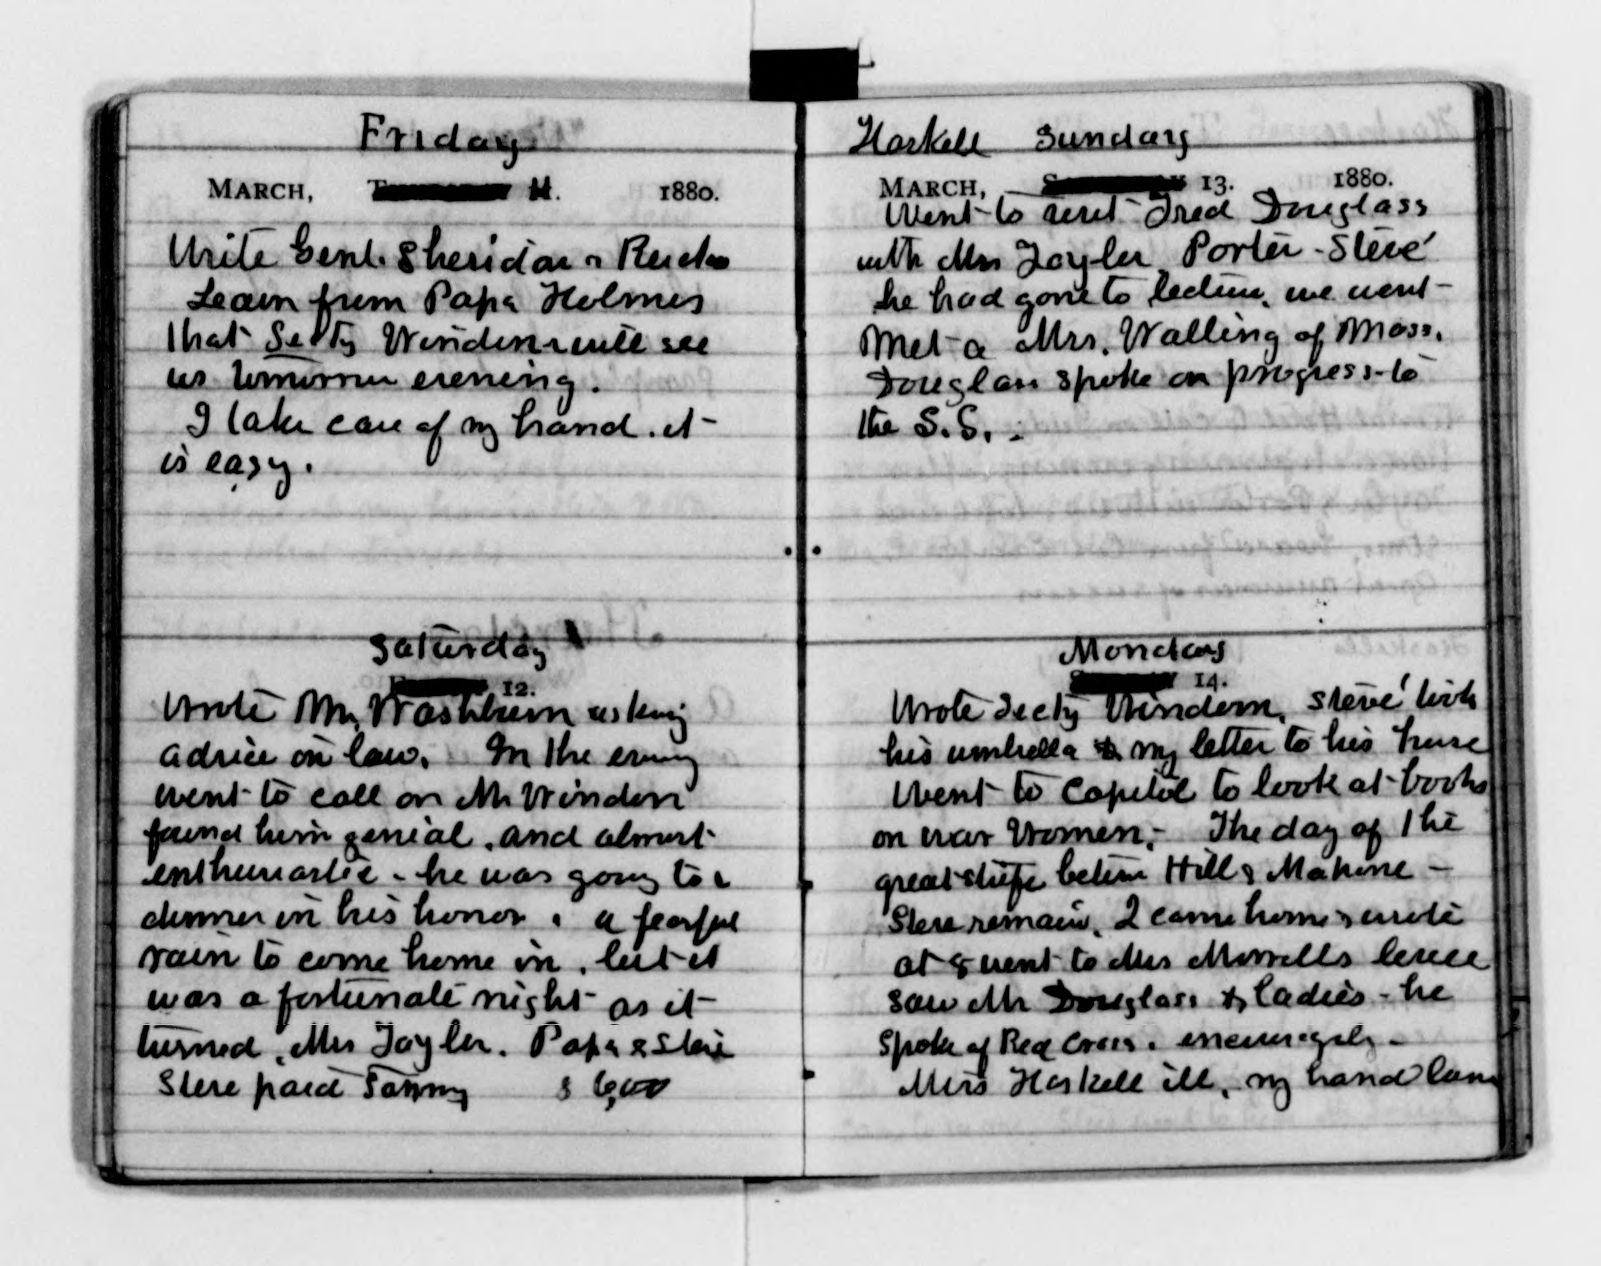 Friday
MARCH, 11. 1880.
Write Genl. Sheridan &
Learn from Papa Holmes
that Secty Windom will see
us tomorrow evening.
I take care of my hand. it
is easy.
Saturday
12.
Wrote Mr. Washburn asking
advice on law. In the evening
went to call on Mr Windom
found him genial, and almost
enthusiastic - he was going to a
dinner in his honor. a fearful
rain to come home in, but it
was a fortunate night as it
turned, Mrs Tayler. Papa & Steve
Steve paid Tammy $ 6,00
Haskell Sunday
MARCH, 13. 1880.
Went to visit Fred Douglass
with Mrs Tayler Porter - Steve
he had gone to lecture, we went -
Met a Mrs. Walling of Mass.
Douglass spoke on progress to
the S.S. .
Monday
14.
Wrote Secty Windom, Steve took
his umbrella & my letter to his house
Went to Capitol to look at books
on war Women. - The day of the
great strife between Hill & Mahone -
Steve remain, I came home & wrote
at 8 went to Mrs Morrells
saw Mr Douglass & ladies - he
spoke of Red Cross. encouragely -
Miss Haskell ill, my hand lame